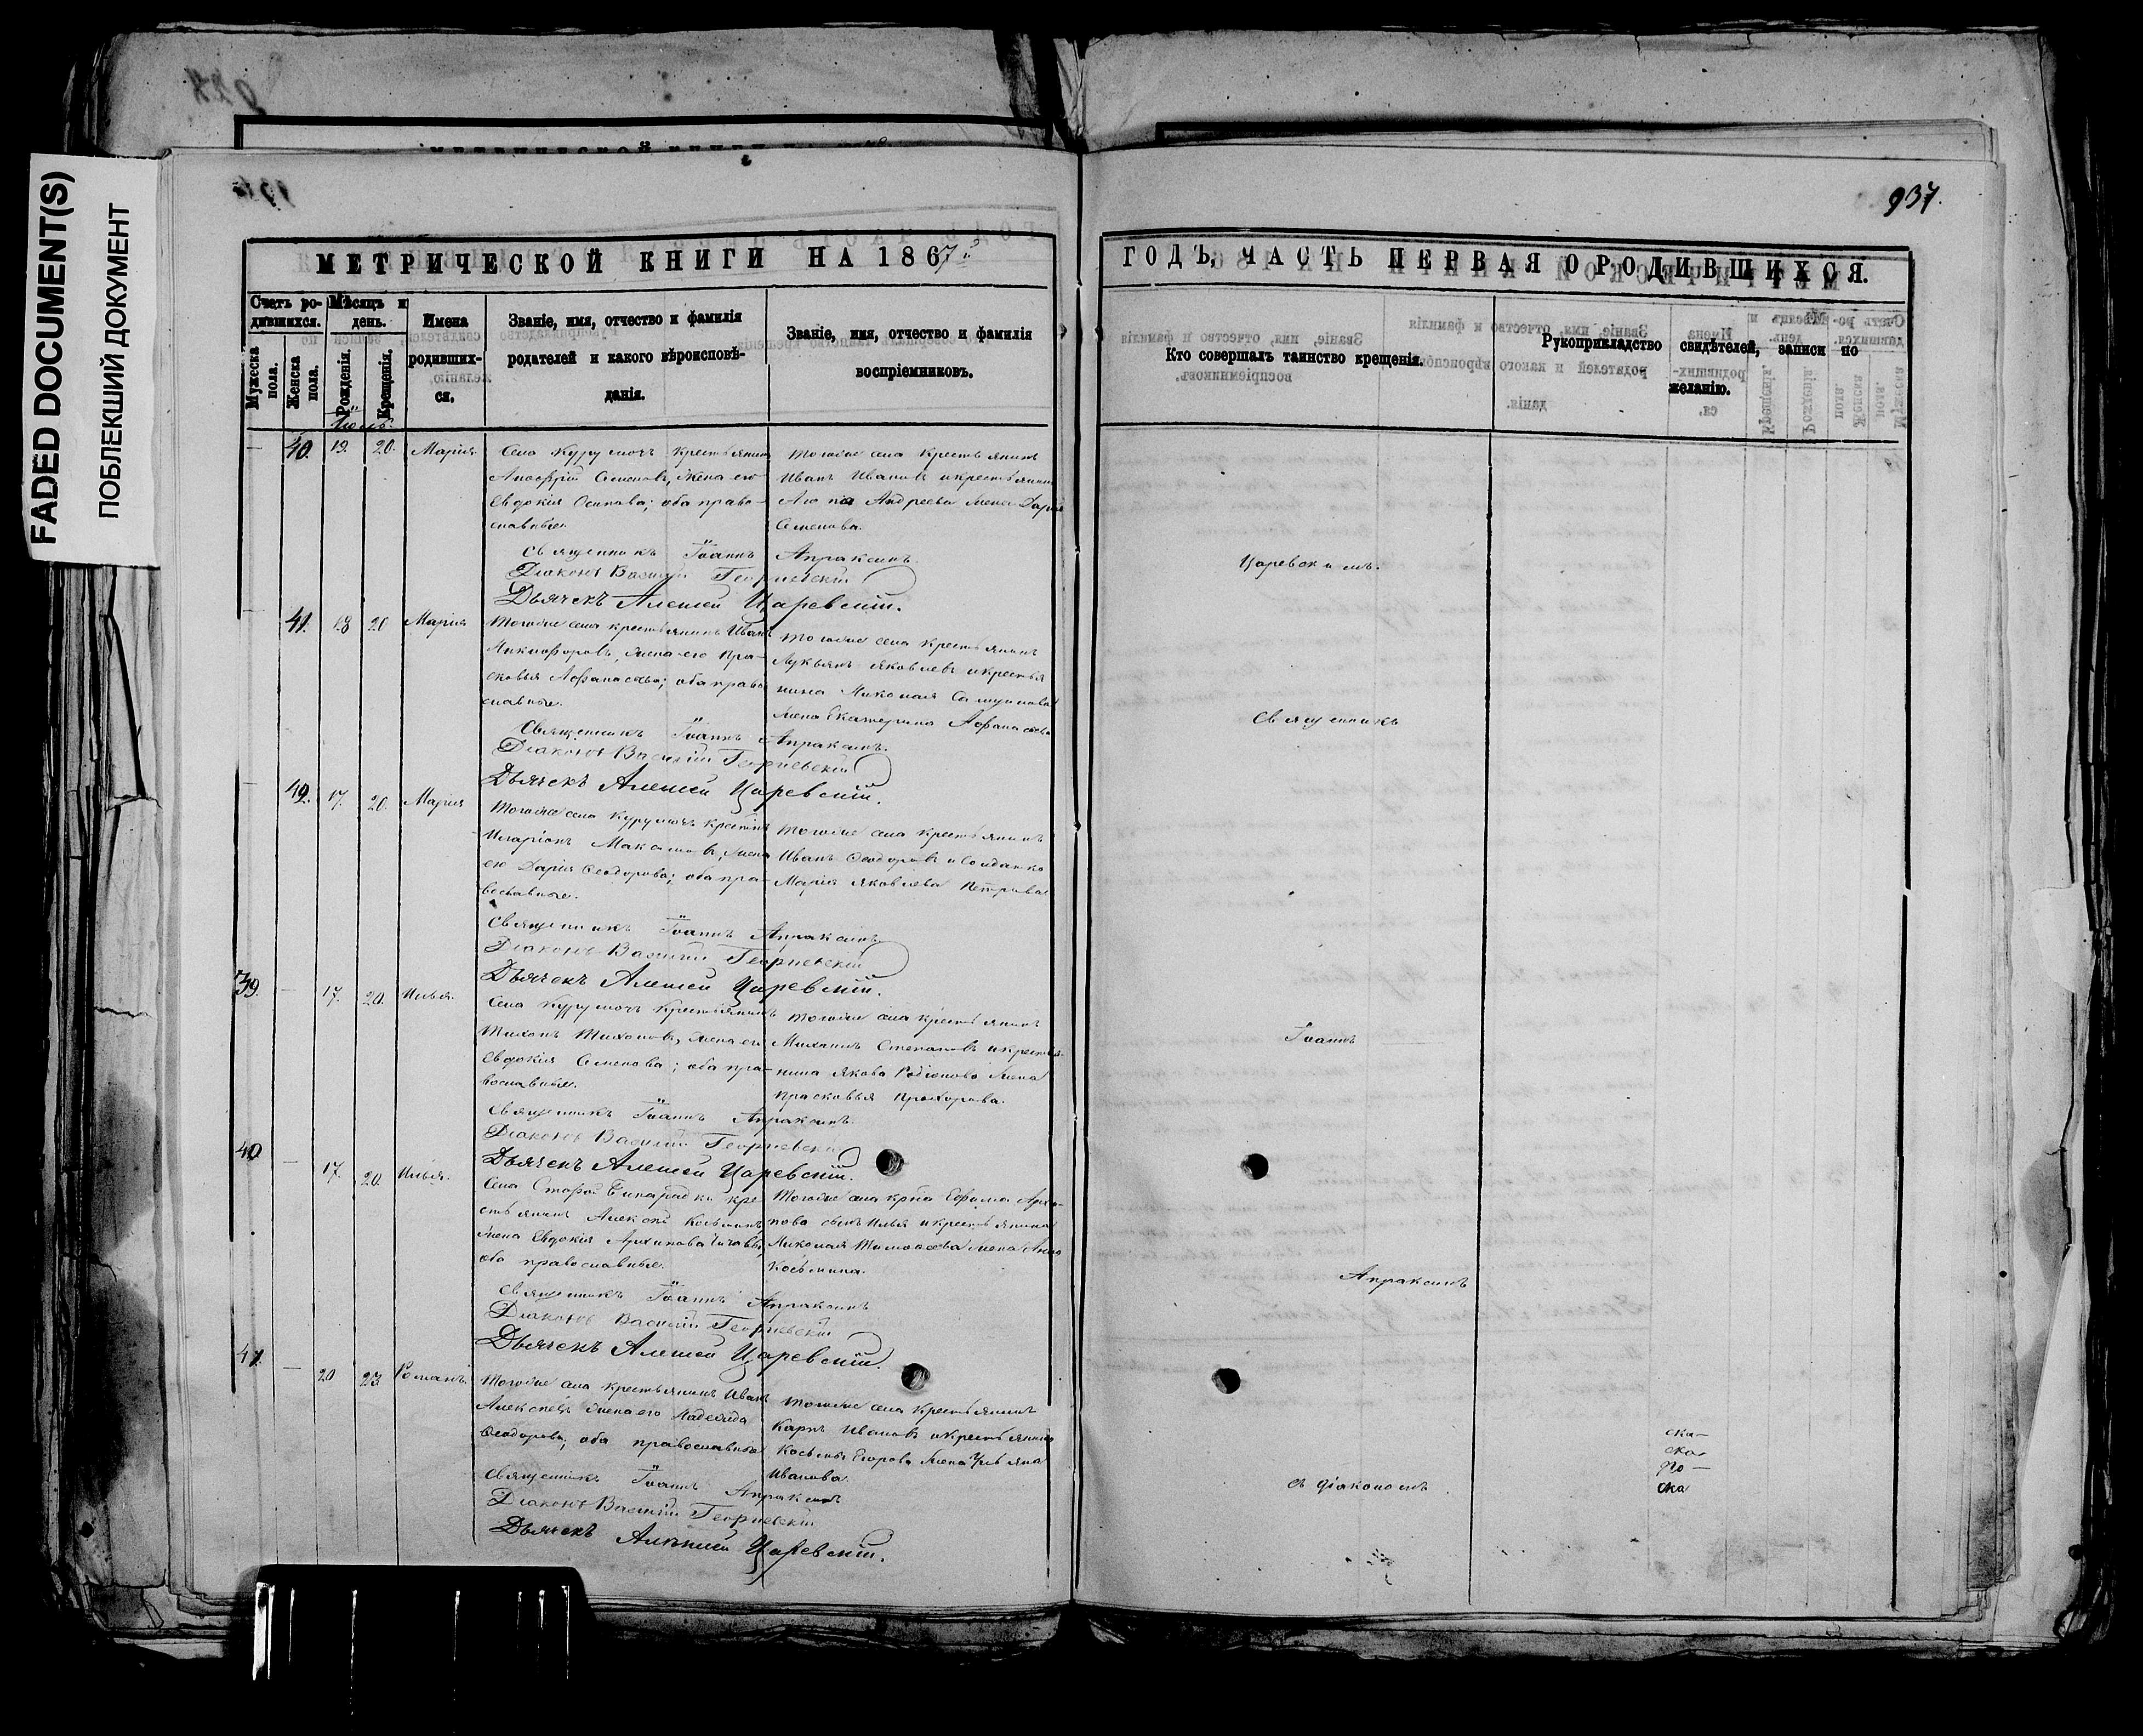 FADED DOCUMENT(S)
ПОБЛЕКШИЙ ДОКУМЕНТ
937.
МЕТРИЧЕСКОЙ КНИГИ НА 1867й
ГОДЪ, ЧАСТЬ ПЕРВАЯ О РОДИВШИХСЯ.
Счетъ ро-
дившихся.
Мужеска пола.
Женска пола.
Мѣсяцъ и
день.
Рожденія.
Крещенія.
Имена
родивших-
ся.
Званіе, имя, отчество и фамилія
родителей и какого вѣроисповѣ-
данія.
Званіе, имя, отчество и фамилія
воспріемниковъ.
Кто совершалъ таинство крещенія.
Рукоприкладство свидѣтелей, записи по
желанію.
Іюль.
40. 19. 20. Марія
Села Курумочъ крестьянинъ
Семеновъ, жена его
Евдокія Осипова; оба право-
славные.
Тогоже села крестьянинъ
Иванъ Ивановъ и крестьянина
Андреева жена Дарья
Семенова.
Священникъ Іоаннъ Апраксинъ.
Діаконъ Василій Георгіевскій
Дьячекъ Алексей Царевскій.
41. 18 20 Марія
Тогоже села крестьянинъ Иванъ
Никифоровъ, жена его Пра-
сковья Афанасьева; оба право
славные.
Тогоже села крестьянинъ
Лукьянъ Яковлевъ и крестья
нина Николая Самуилова
жена Екатерина Афанасьева
Священникъ Іоаннъ Апраксинъ.
Діаконъ Василій Георгіевскій
Дьячекъ Алексей Царевскій.
42. 17. 20. Марія
Тогоже села Курумочъ крестьян
Иларіонъ Максимовъ, жена
его Дарія Феодорова; оба пра-
вославные.
Тогоже села крестьянинъ
Иванъ Феодоровъ и солдатка
Марія Яковлева Петрова
Священникъ Іоаннъ Апраксинъ
Діаконъ Василій Георгіевскій
Дьячекъ Алексей Царевскій.
39. 17. 20. Илья.
Села Курумочъ крестьянинъ
Тихонъ Тихоновъ, жена его
Евдокія Семенова; оба пра-
вославные.
Тогоже села крестьянинъ
Михаилъ Степановъ и крестья-
нина Якова Родіонова жена
Прасковья Прохорова.
Священникъ Іоаннъ Апраксинъ.
Діаконъ Василій Георгіевскій
Дьячекъ Алексей Царевскій.
40 17. 20. Илья.
Села Старой Бинарадки кре
стьянинъ Алексѣй Косьминъ,
жена Евдокія Архипова
оба православные.
Тогоже села Ефима Архи-
пова сынъ Илья и крестьянина
Николая Тимофеева жена Анна
Косьмина.
Священникъ Іоаннъ Апраксинъ
Діаконъ Василій Георгіевскій
Дьячекъ Алексей Царевскій.
41. 20 23 Романъ.
Тогоже села крестьянинъ Иванъ
Алексѣевъ жена его Надежда
Феодорова; оба православные
Тогоже села крестьянинъ
Карпъ Ивановъ и крестьянина
Косьмы Егорова жена Ульяна
Иванова.
Священникъ Іоаннъ Апраксинъ
Діаконъ Василій Георгіевскій
Дьячекъ Алексей Царевскій.
Царевскимъ.
Священникъ
Іоаннъ
Апраксинъ
съ діакономъ
ска-
ска-
го-
ска